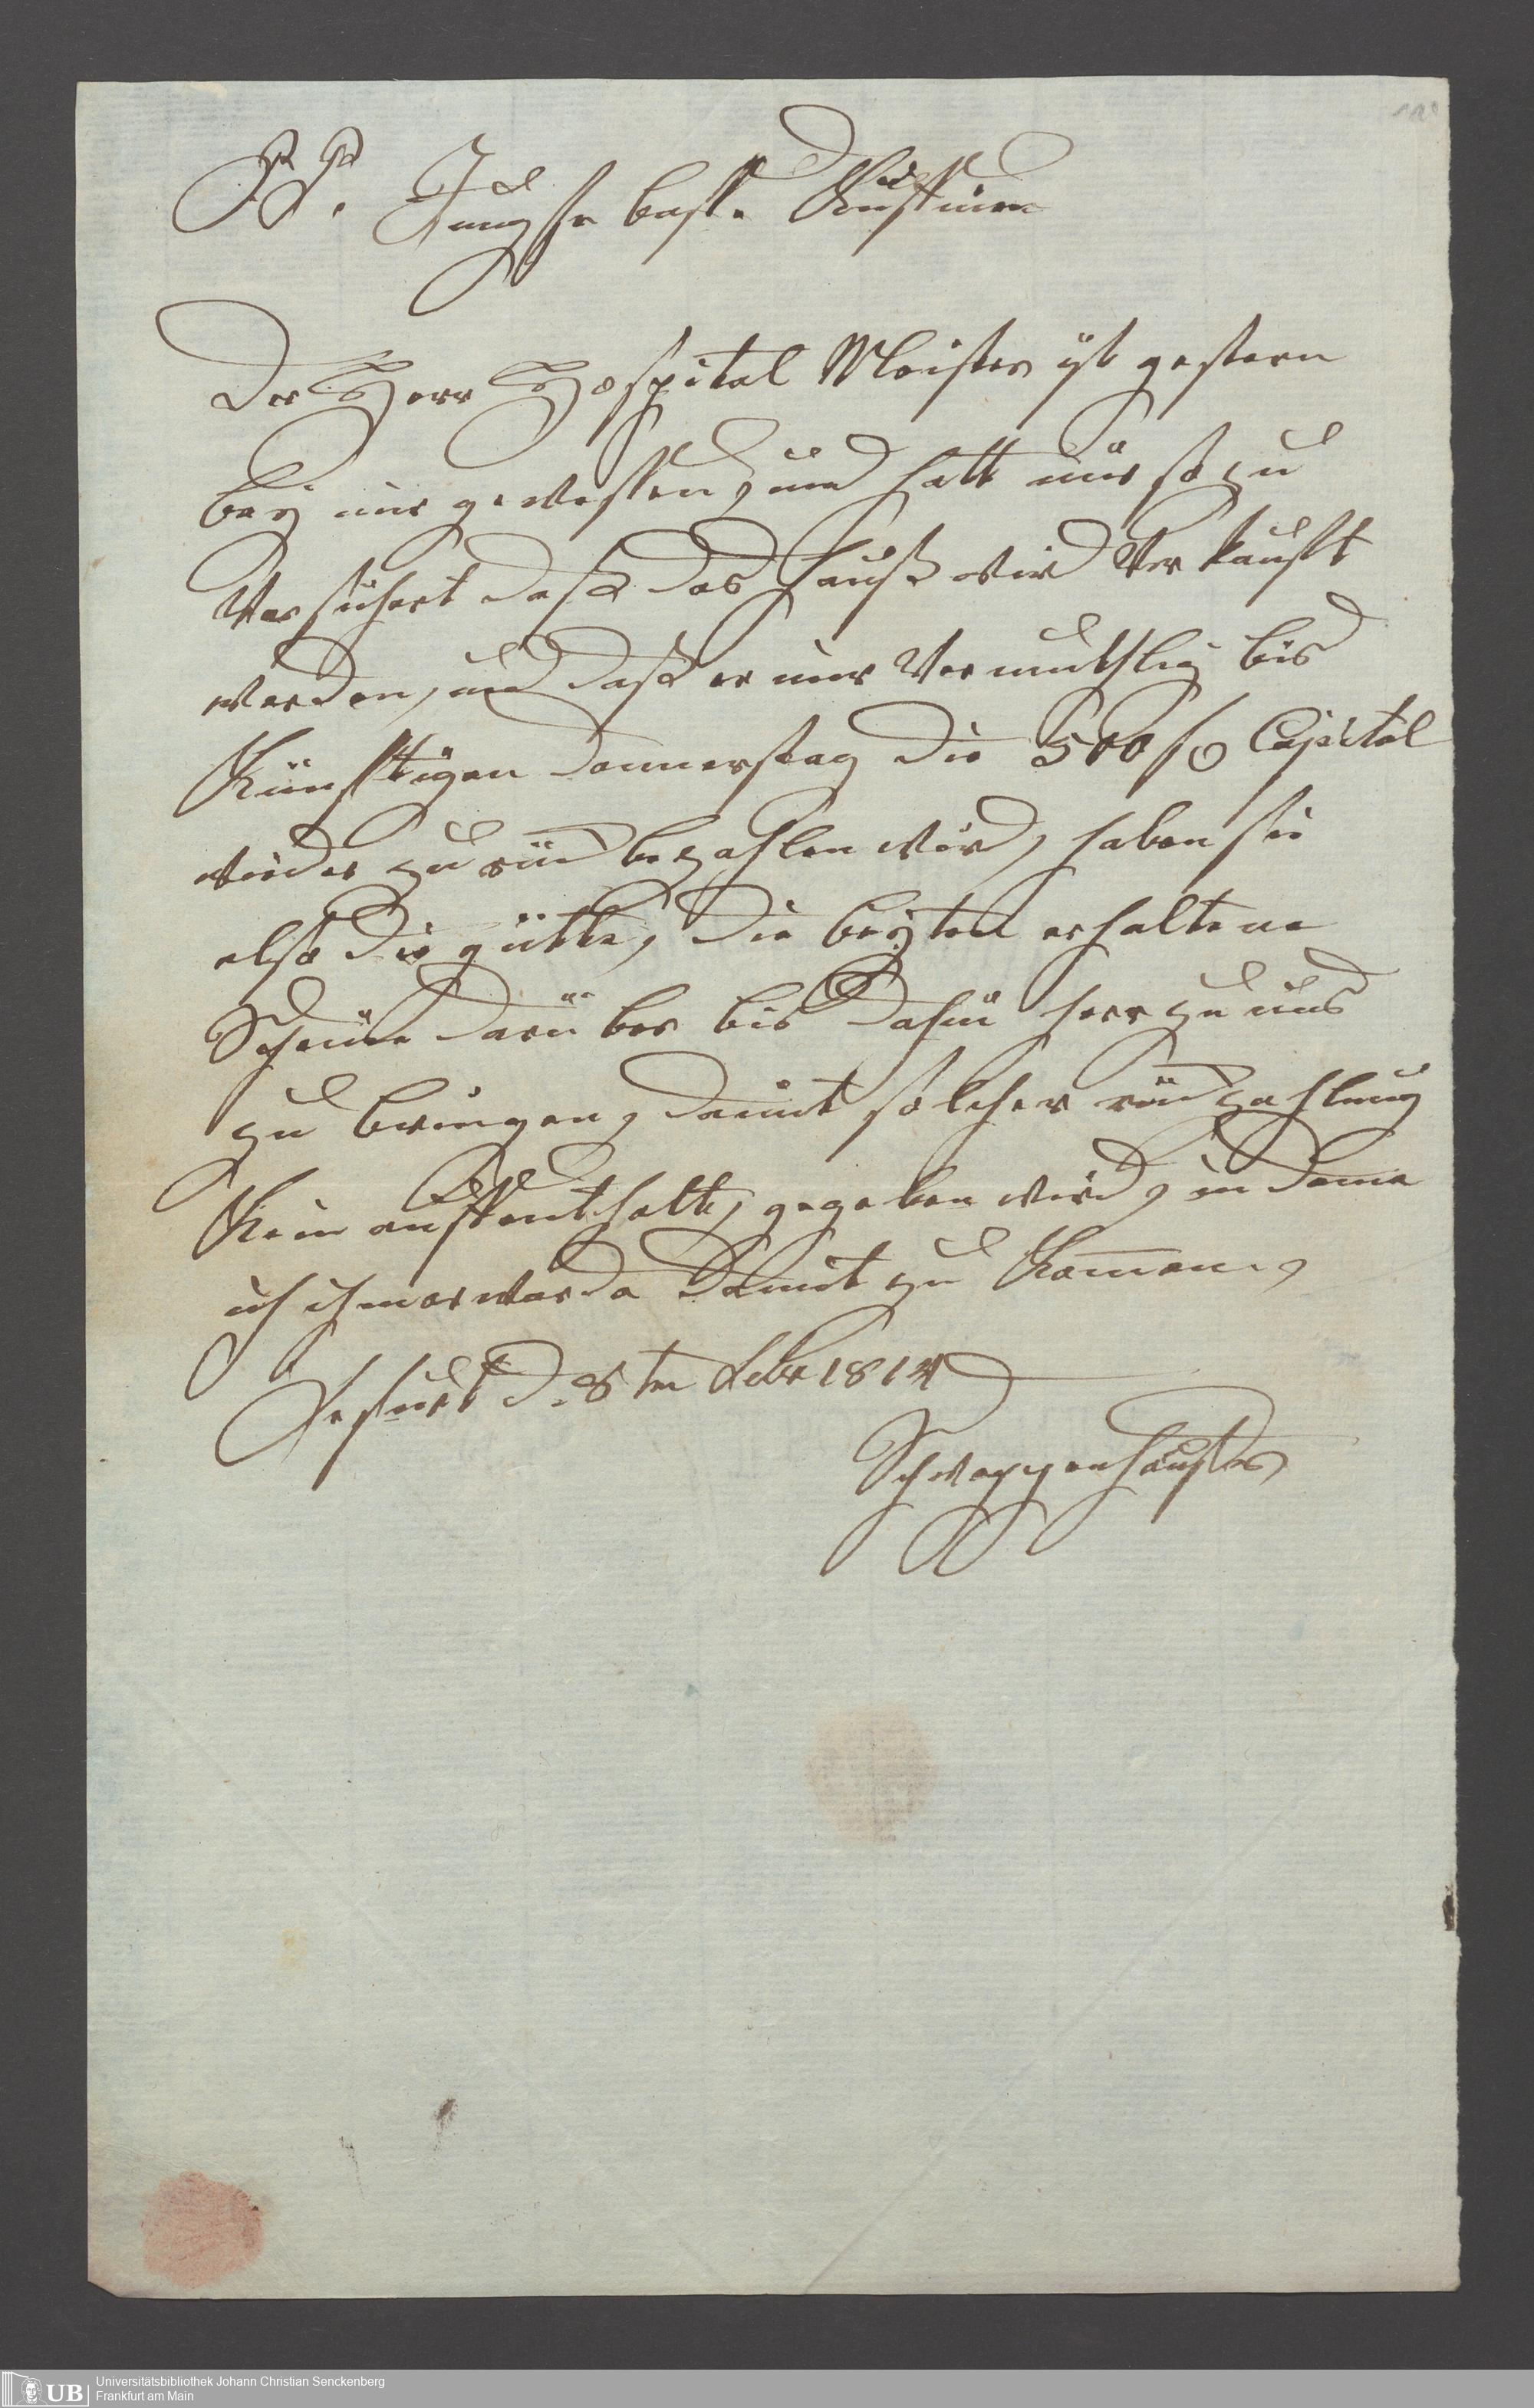 P. P. Jungfr baßs. Christinen
Der Herr Hospital Meister ist gestern
bey mir gewessen, und hatt mir so zu
Versichert daß das Hauß wird Verkaufft
werden, und daß er mir Vermuthlig bis
Künfftigen donnerstag die 500 f Capital
wieder zu rück bezahlen wird, haben sie
also die gütte, die beyden erhaltene
Scheine darüber bis dahin herr zu uns
zu bringen, damit solcher rückzahlung
Kein auffenthalt, gegeben wird, in deme
ich ihm erwarde damit zu Kommen,
d. 8ten Febr 1814
Schwappenhäußer
Universitätsbibliothek Johann Christian Senckenberg
Frankfurt am Main
UB